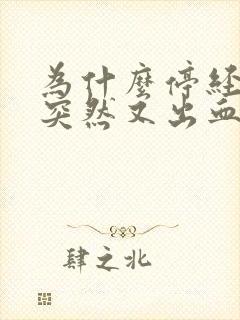 為什麼停經
突然又出血
肆之北